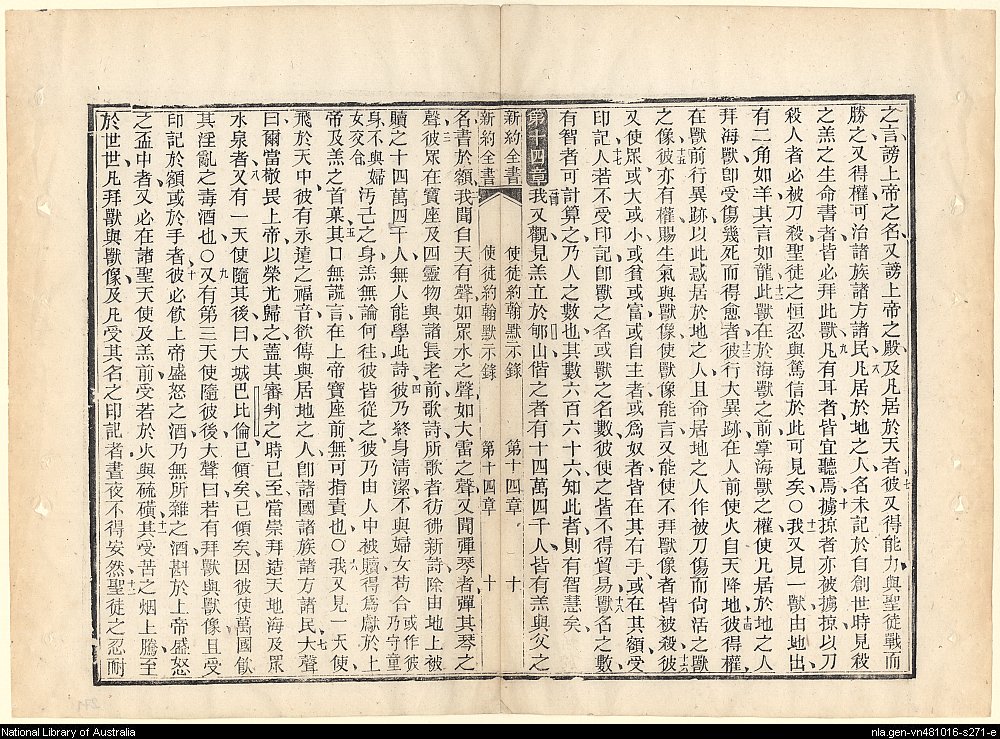 之言謗上帝之名又謗上帝之殿及凡居於天者七彼又得能力與聖徒戰而
勝之又得權可治諸族諸方諸民八凡居於地之人名未記於自創世時見殺
之羔之生命書者皆必拜此獸九凡有耳者皆宜聽焉十擄掠者亦被擄掠以刀
殺人者必被刀殺聖徒之恒忍與篤信於此可見矣〇十一我又見一獸由地出
有二角如羊其言如龍十二此獸在於海獸之前掌海獸之權使凡居於地之人
拜海獸卽受傷幾死而得愈者十三彼行大異跡在人前使火自天降地十四彼得權
在獸前行異跡以此惑居於地之人且命居地之人作被刀傷而尙活之獸
之像十五彼亦有權賜生氣與獸像使獸像能言又能使不拜獸像者皆被殺十六彼
又使眾或大或小或貧或富或自主者或爲奴者皆在其右手或在其額受
印記十七人若不受印記卽獸之名或獸之名數彼使之皆不得貿易十八獸名之數
有智者可計算之乃人之數也其數六百六十六知此者則有智慧矣
第十四章 一我又觀見羔立於郇山偕之者有十四萬四千人皆有羔與父之
新約全書 使徒約翰默示錄 第十四章 十
新約全書 使徒約翰默示錄 第十四章 十
名書於額二我聞自天有聲如眾水之聲如大雷之聲又聞彈琴者彈其琴之
聲三彼眾在寶座及四靈物與諸長老前歌詩所歌者彷彿新詩除由地上被
贖之十四萬四千人無人能學此詩四彼乃終身清潔不與婦女苟合乃守童身不與婦女交合或作彼
汚己之身羔無論何往彼皆從之彼乃由人中被贖得爲獻於上
帝及羔之首菓五其口無謊言在上帝寶座前無可指責也〇六我又見一天使
飛於天中彼有永遠之福音欲傳與居地之人卽諸國諸族諸方諸民七大聲
曰爾當敬畏上帝以榮光歸之蓋其審判之時已至當崇拜造天地海及眾
水泉者八又有一天使隨其後曰大城巴比倫已傾矣已傾矣因彼使萬國飮
其淫亂之毒酒也〇九又有第三天使隨彼後大聲曰若有拜獸與獸像且受
印記於額或於手者十彼必飮上帝盛怒之酒乃無所雜之酒斟於上帝盛怒
之盃中者又必在諸聖天使及羔前受若於火與硫磺十一其受苦之烟上騰至
於世世凡拜獸與獸像及凡受其名之印記者晝夜不得安然十二聖徒之忍耐
National Library of Australia
nla.gen-vn481016-s271-e